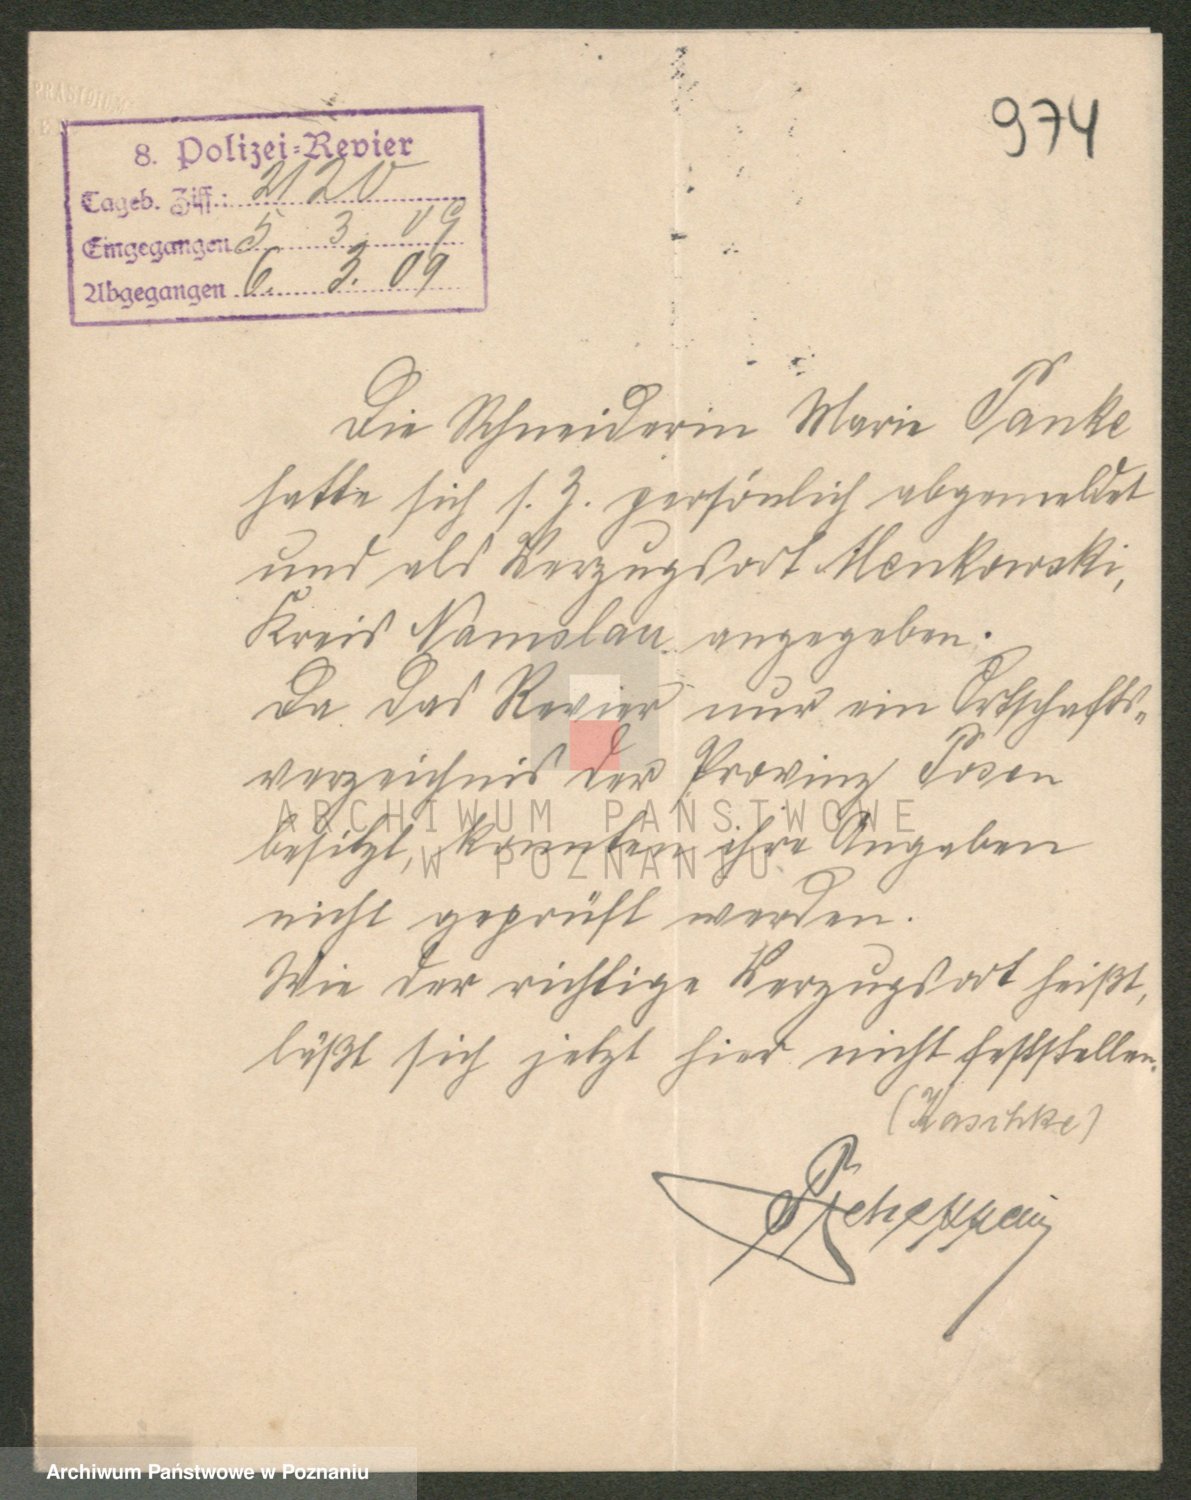 974
8. Polizei-Revier
Tageb. Ziff.: 2120
Eingegangen 5. 3. 09
Abgegangen 6. 3. 09
Die Schneiderin Marie Panke
hatte sich s. Z. persönlich abgemeldet
und als Verzugsort Menkowski,
Kreis Namslau angegeben.
Da das Revier nur ein Ortschafts-
verzeichnis der Provinz Posen
besitzt, konnten ihre Angaben
nicht geprüft werden.
Wie der richtige Verzugsort heißt,
läßt sich jetzt hier nicht feststellen.
(Kaschke)
ARCHIWUM PAŃSTWOWE
W POZNANIU
Archiwum Państwowe w Poznaniu